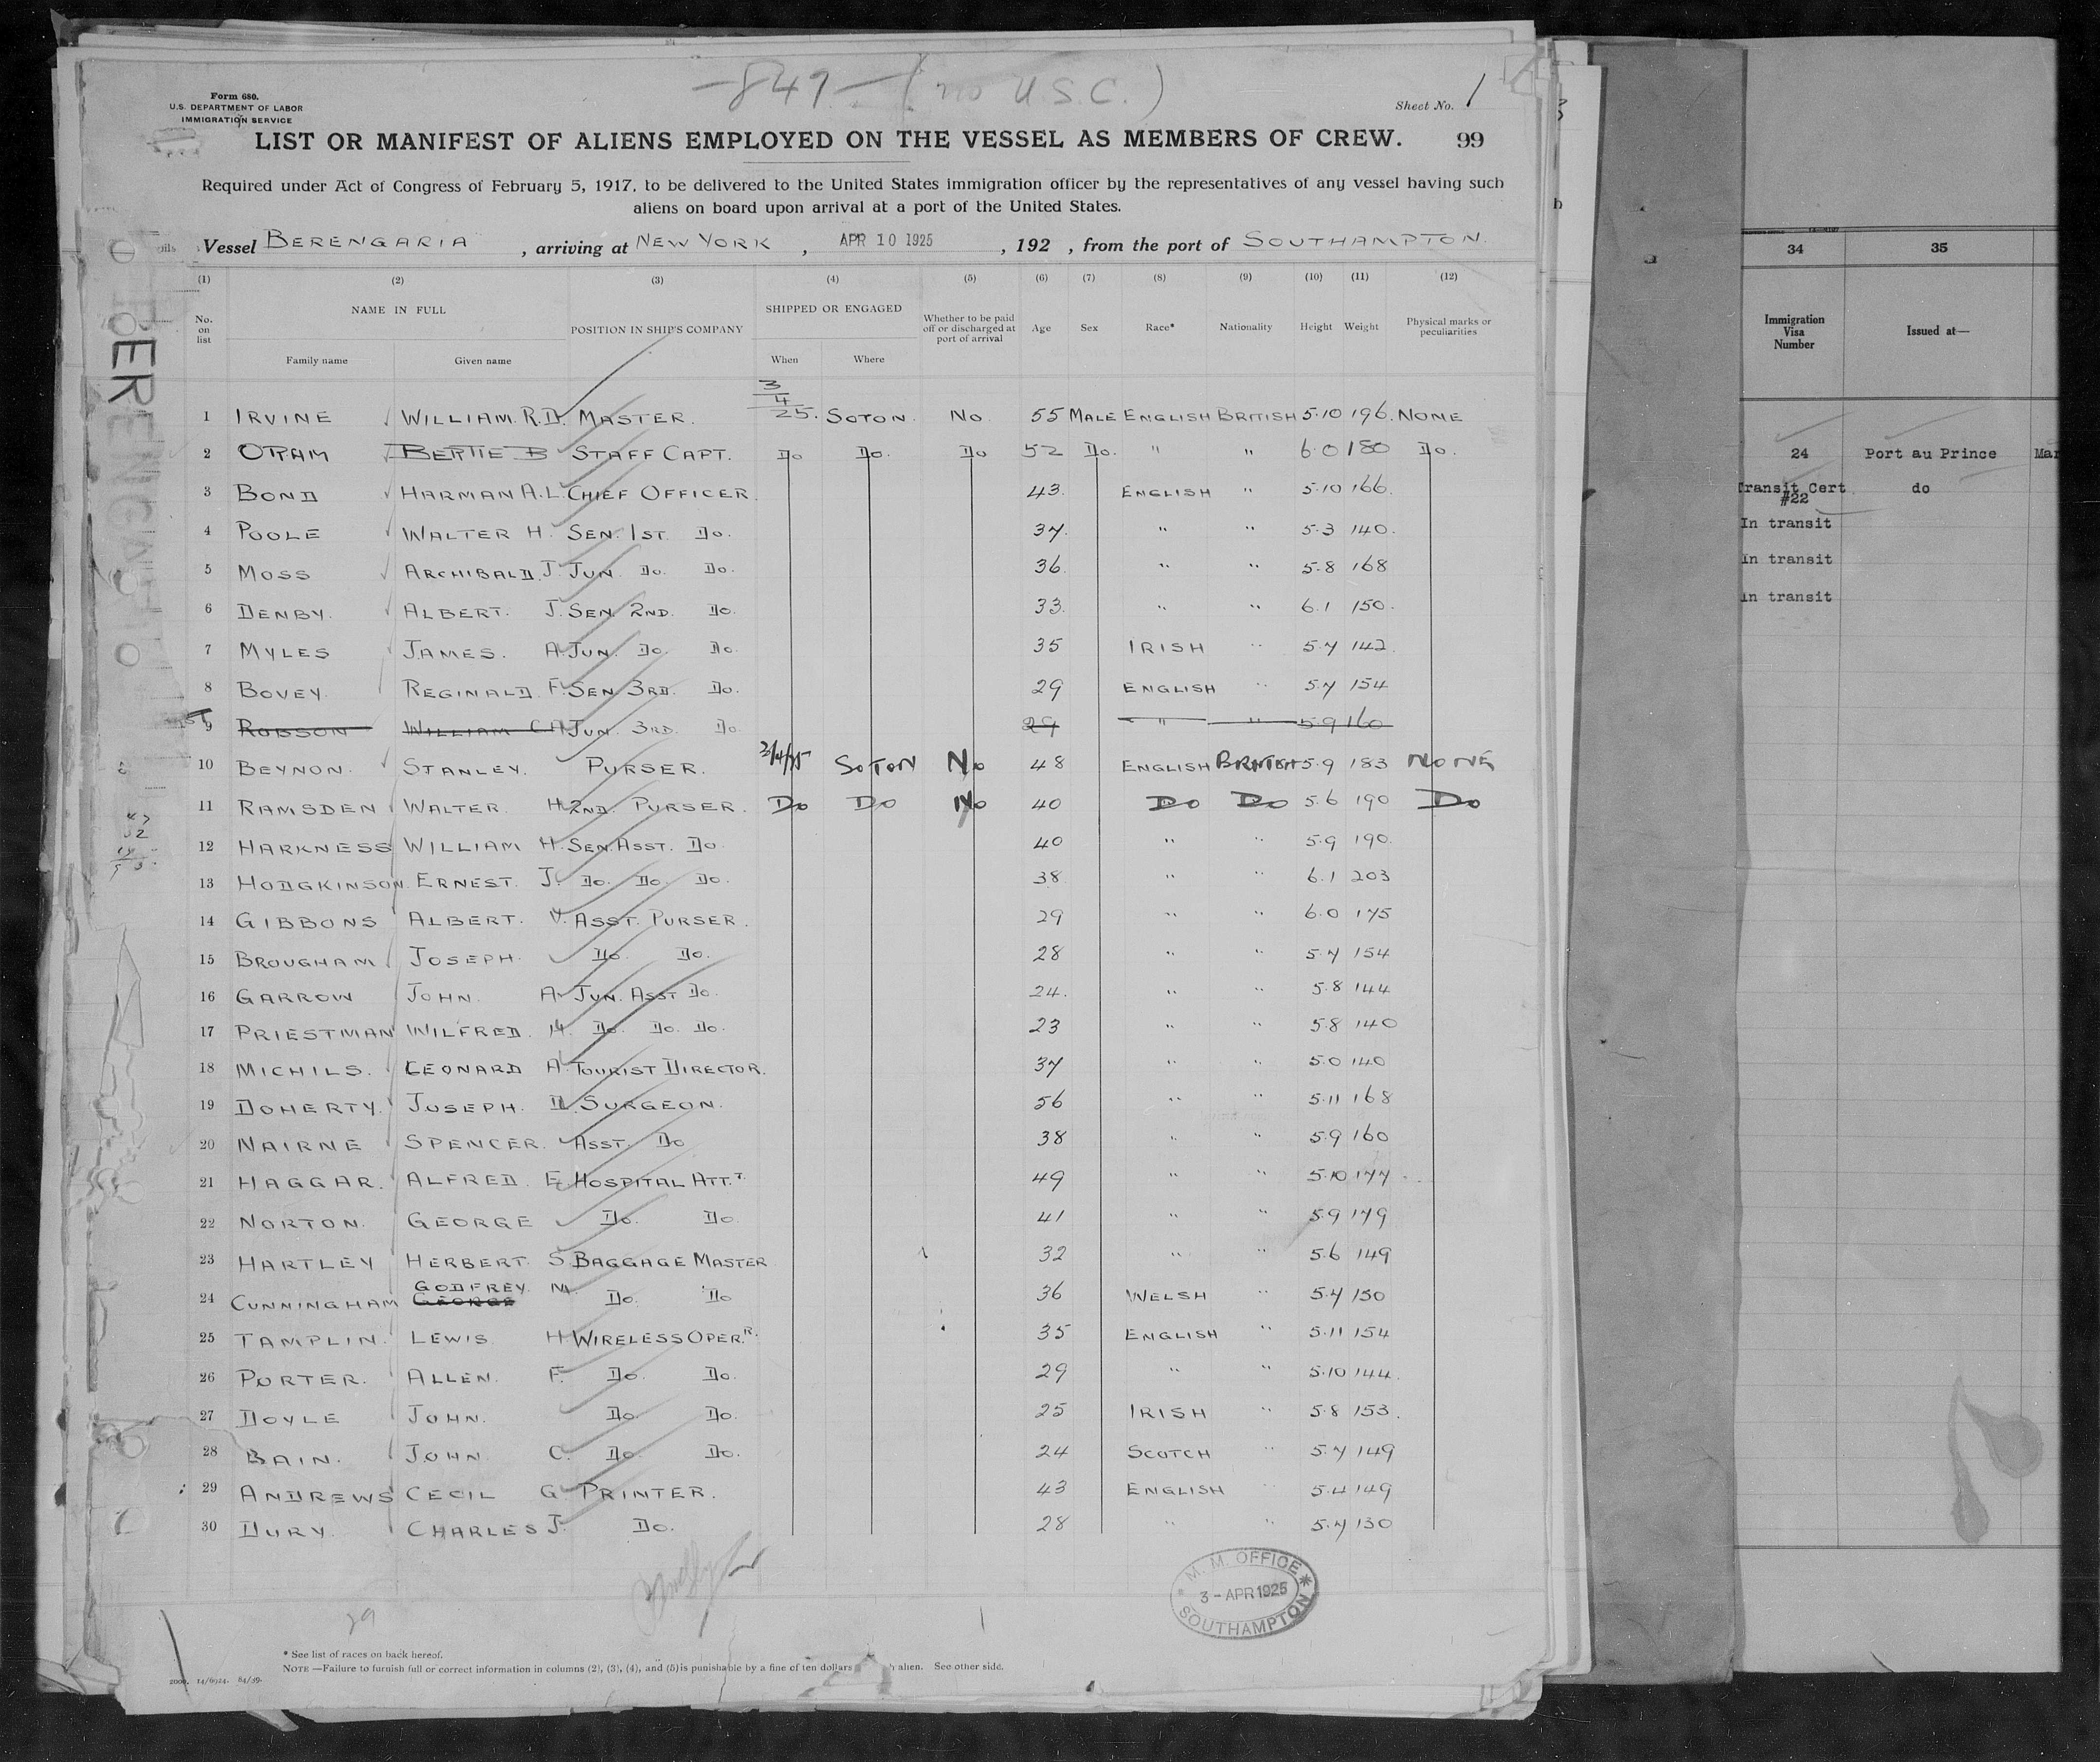 -847- (no U.S.C.)
Form 680.
U.S. DEPARTMENT OF LABOR
IMMIGRATION SERVICE
Sheet No. 1
LIST OR MANIFEST OF ALIENS EMPLOYED ON THE VESSEL AS MEMBERS OF CREW. 99
Required under Act of Congress of February 5, 1917, to be delivered to the United States immigration officer by the representatives of any vessel having such
aliens on board upon arrival at a port of the United States.
Vessel BERENGARIA, arriving at NEW YORK, APR 10 1925, 192 , from the port of SOUTHAMPTON.
(1) (2) (3) (4) (5) (6) (7) (8) (9) (10) (11) (12)
No. on list NAME IN FULL POSITION IN SHIP'S COMPANY SHIPPED OR ENGAGED Whether to be paid off or discharged at port of arrival Age Sex Race* Nationality Height Weight Physical marks or peculiarities
Family name Given name When Where
1 IRVINE WILLIAM. R.D. MASTER. 3/4/25. SOTON. No 55 MALE ENGLISH BRITISH 5.10 196. NONE
2 ORAM BERTIE B STAFF CAPT. Do Do. Do 52 Do. " " 6.0 180 Do.
3 BOND HARMAN A.L. CHIEF OFFICER. 43. ENGLISH " 5.10 166.
4 POOLE WALTER H. SEN. 1ST. Do. 37. " " 5.3 140.
5 MOSS ARCHIBALD. J. JUN. Do. Do. 36. " " 5.8 168
6 DENBY. ALBERT. J. SEN. 2ND. Do. 33. " " 6.1 150.
7 MYLES JAMES. A. JUN. Do. Do. 35 IRISH " 5.7 142.
8 BOVEY. REGINALD. F. SEN. 3RD. Do. 29 ENGLISH " 5.7 154
9 ROBSON WILLIAM C.A. JUN. 3RD. Do 29 " " 5.9 160
10 BEYNON. STANLEY. PURSER. 3/4/25 SOTON No 48 ENGLISH BRITISH 5.9 183 NONE
11 RAMSDEN WALTER. H. 2ND. PURSER. Do Do No 40 Do Do 5.6 190 Do
12 HARKNESS WILLIAM H. SEN. ASST. Do 40 " " 5.9 190.
13 HODGKINSON. ERNEST. J. Do. Do. Do. 38 " " 6.1 203
14 GIBBONS ALBERT. V. ASST. PURSER. 29 " " 6.0 175
15 BROUGHAM JOSEPH. Do. Do. 28 " " 5.7 154
16 GARROW JOHN. A. JUN. ASST Do. 24. " " 5.8 144
17 PRIESTMAN WILFRED. H. Do. Do. Do. 23 " " 5.8 140
18 MICHILS. LEONARD A. TOURIST DIRECTOR. 37 " " 5.0 140
19 DOHERTY. JOSEPH. D. SURGEON. 56 " " 5.11 168
20 NAIRNE SPENCER. ASST. Do 38 " " 5.9 160
21 HAGGAR. ALFRED. E. HOSPITAL ATTT. 49 " " 5.10 177
22 NORTON. GEORGE Do. Do. 41 " " 5.9 179
23 HARTLEY HERBERT. S. BAGGAGE MASTER 32 " " 5.6 149
24 CUNNINGHAM GEORGE GODFREY. M. Do. Do 36 WELSH " 5.7 150
25 TAMPLIN. LEWIS. H. WIRELESS OPERR. 35 ENGLISH " 5.11 154
26 PORTER. ALLEN. F. Do. Do. 29 " " 5.10 144.
27 DOYLE JOHN. Do. Do. 25 IRISH " 5.8 153.
28 BAIN. JOHN C. Do. Do. 24 SCOTCH " 5.7 149
29 ANDREWS CECIL G. PRINTER. 43 ENGLISH " 5.4 149
30 DURY. CHARLES J. Do. 28 " " 5.7 130
M. M. OFFICE
3 - APR 1925
SOUTHAMPTON
29
* See list of races on back hereof.
NOTE—Failure to furnish full or correct information in columns (2), (3), (4), and (5) is punishable by a fine of ten dollars alien. See other side.
2000. 14/6924. 84/39.
BERENGARIA
34 35
Immigration Visa Number Issued at—
24 Port au Prince Mar
Transit Cert #22 do
In transit
In transit
In transit